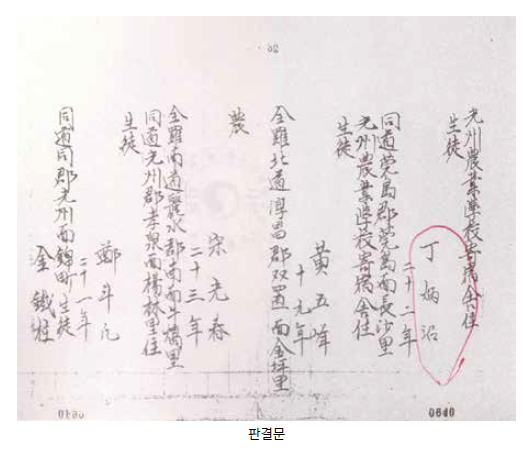 光州農業學校寄宿舍住
生徒
丁炳沼
二十二年
同道莞島郡莞島面長沙里
光州農業學校寄宿舍住
生徒
黃五峰
十九年
全羅北道淳昌郡双置面金坪里
農
宋光春
二十三年
全羅南道麗水郡南面牛鶴里
同道光州郡孝泉面楊林里住
生徒
鄭斗凡
二十一年
同道同郡光州面錦町生徒
金鐵柱
판결문